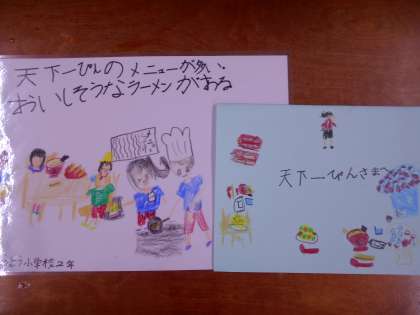 天下一ぴんのメニューが多い。
おういしそうなラーメンがある
小学校2年
天下一ぴんさまへ